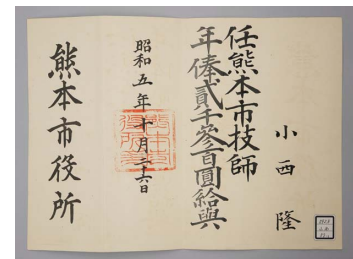 小西隆
任熊本市技師
年俸貳千參百圓給與
昭和五年十月二十六日
熊本市役所